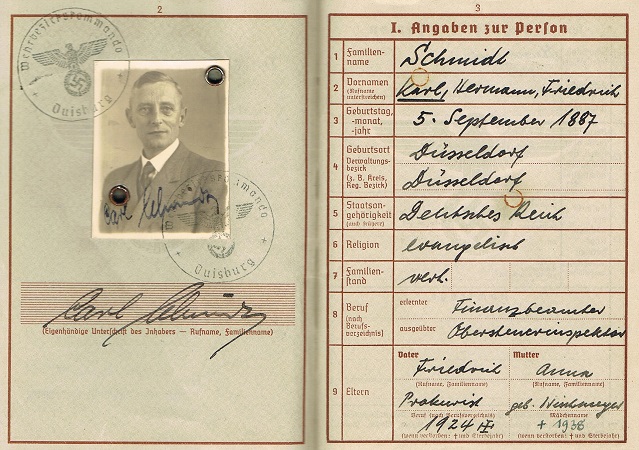 2
Wehrbezirkskommando
Duisburg
Carl Schmidt
Wehrbezirkskommando
Duisburg
Carl Schmidt
(Eigenhändige Unterschrift des Inhabers — Rufname, Familienname)
3
I. Angaben zur Person
1 Familienname Schmidt
2 Vornamen (Rufname unterstreichen) Karl, Hermann, Friedrich
3 Geburtstag, -monat, -jahr 5. September 1887
4 Geburtsort Düsseldorf
Verwaltungsbezirk (z. B. Kreis, Reg. Bezirk) Düsseldorf
5 Staatsangehörigkeit (auch frühere) Deutsches Reich
6 Religion evangelisch
7 Familienstand verh.
8 Beruf (nach Berufsverzeichnis) erlernter Finanzbeamter
ausgeübter Obersteuerinspektor
9 Eltern
Vater Mutter
Friedrich Anna
(Rufname, Familienname) (Rufname, Familienname)
Prokurist geb.
Beruf (nach Berufsverzeichnis) Mädchenname
1924 + 1938
(wenn verstorben: † und Sterbejahr) (wenn verstorben: † und Sterbejahr)